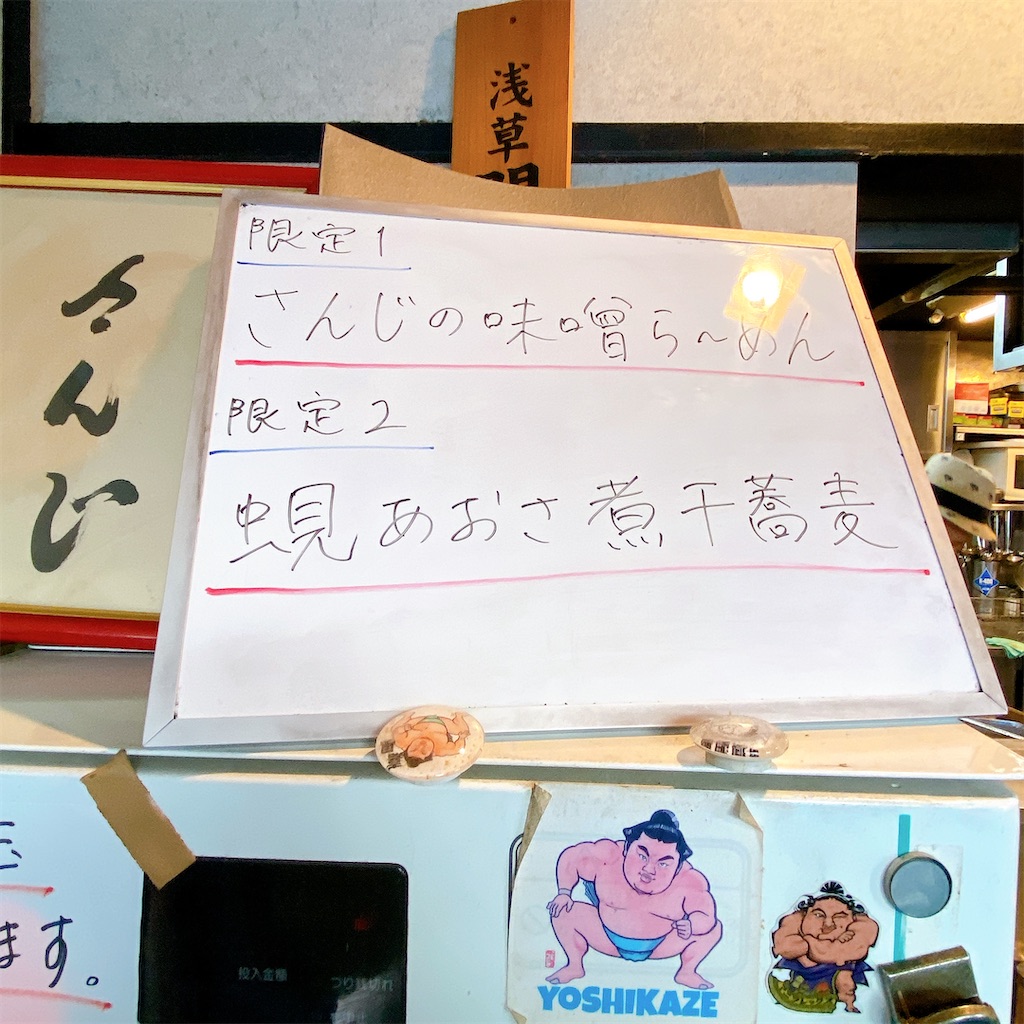 浅草
さんじ
限定1
さんじの味噌ら～めん
限定2
蜆あおさ煮干蕎麦
ます。
投入金額
つり銭切れ
YOSHIKAZE